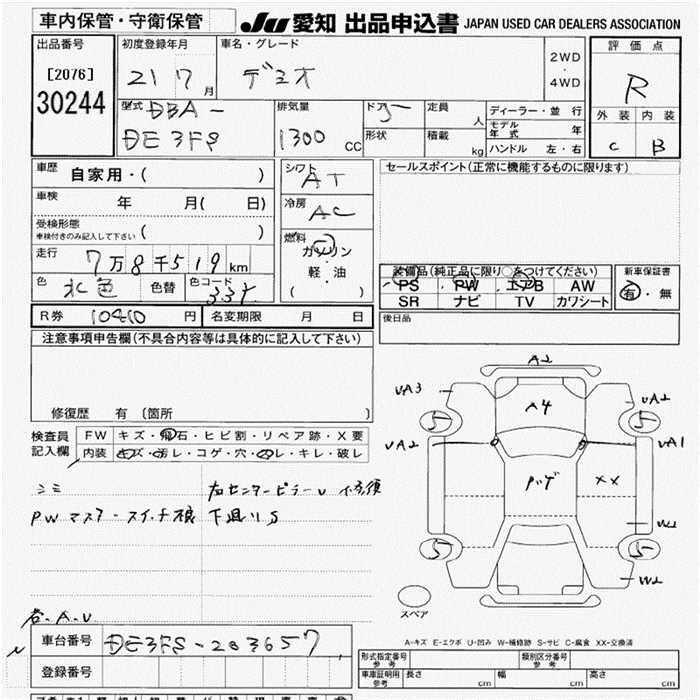 車内保管・守衛保管
JU 愛知 出品申込書 JAPAN USED CAR DEALERS ASSOCIATION
出品番号
[2076]
30244
初度登録年月
21 7 月
車名・グレード
デミオ
2WD
・
4WD
評価点
R
外装 内装
C B
型式 DBA-
DE3FS
排気量
1300 CC
ドア 5
形状
定員 人
積載 kg
ディーラー・並行
モデル年式 年
ハンドル 左・右
車歴 自家用・( )
車検 年 月( 日)
受検形態
車検付きのみ記入して下さい ( )
走行 7万8千519km
色 水色 色替 色コード
シフト AT
冷房 AC
燃料
ガソリン
軽・油
( )
セールスポイント(正常に機能するものに限ります)
装備品(純正品に限り○をつけてください)
PS PW エアB AW
SR ナビ TV カワシート
新車保証書
有・無
R券 10410 円 名変期限 月 日
後日品
注意事項申告欄(不具合内容等は具体的に記入して下さい)
修復歴 有 〔箇所 〕
検査員
記入欄
FW キズ・飛石・ヒビ割・リペア跡・X要
内装 キズ・汚レ・コゲ・穴・スレ・キレ・破レ
シミ
PWマスタースイッチ様
右センターピラーU イ多須
下廻りS
各-A-U
A2
UA3
A4
UA2
5 5
UA2
UA1
パゲ
XX
5 5
W2
スペア
A-キズ E-エクボ U-凹み W-補修跡 S-サビ C-腐食 XX-交換済
車台番号 DE3FS-203657
登録番号
型式指定番号
参考
類別区分番号
参考
車庫証明用
参考
長さ cm 幅 cm 高さ cm